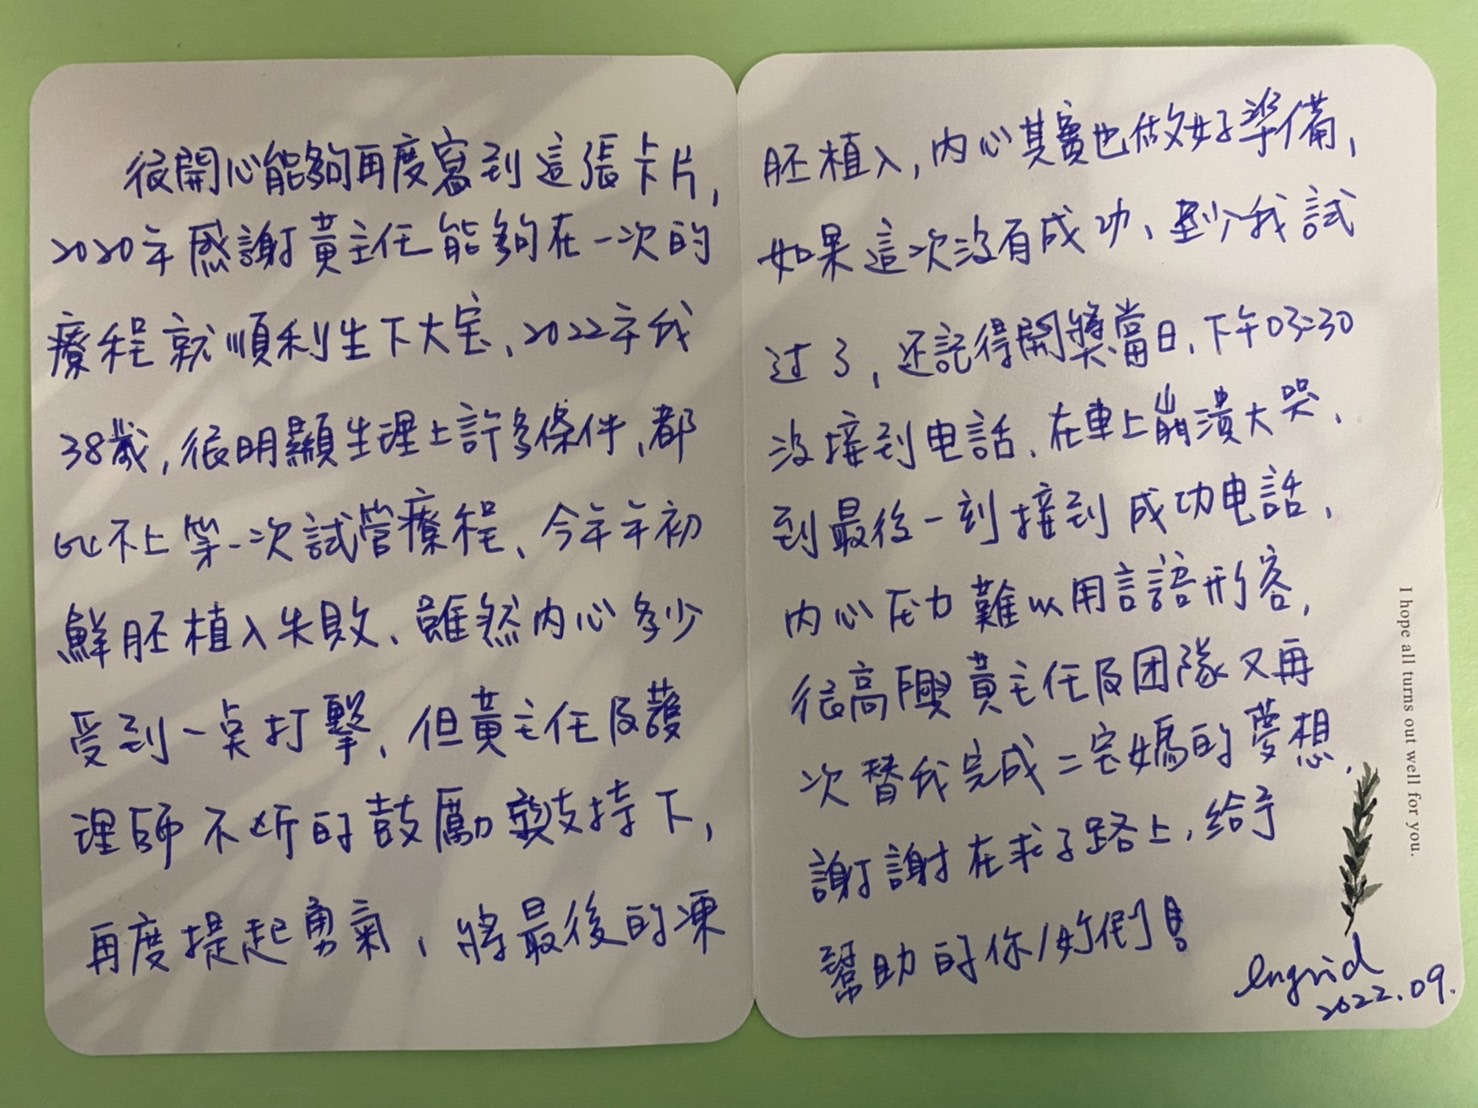 很開心能夠再度寫到這張卡片,
2020年感謝黃主任能夠在一次的
療程就順利生下大宝、2022年我
38歲,很明顯生理上許多條件,都
比不上第一次試管療程、今年年初
鮮胚植入失敗、雖然內心多少
受到一点打擊,但黃主任及護
理師不断的鼓勵與支持下,
再度提起勇氣,將最後的凍
胚植入,內心其實也做好準備,
如果這次沒有成功、至少我試
过了,还記得開獎當日,下午03:30
沒接到电話、在車上崩潰大哭、
到最後一刻接到成功电話,
內心压力難以用言語形容,
很高興黃主任及团隊又再
次替我完成二宝媽的夢想,
謝謝在求子路上,給予
幫助的你/妳们!
Ingrid
2022.09.
I hope all turns out well for you.